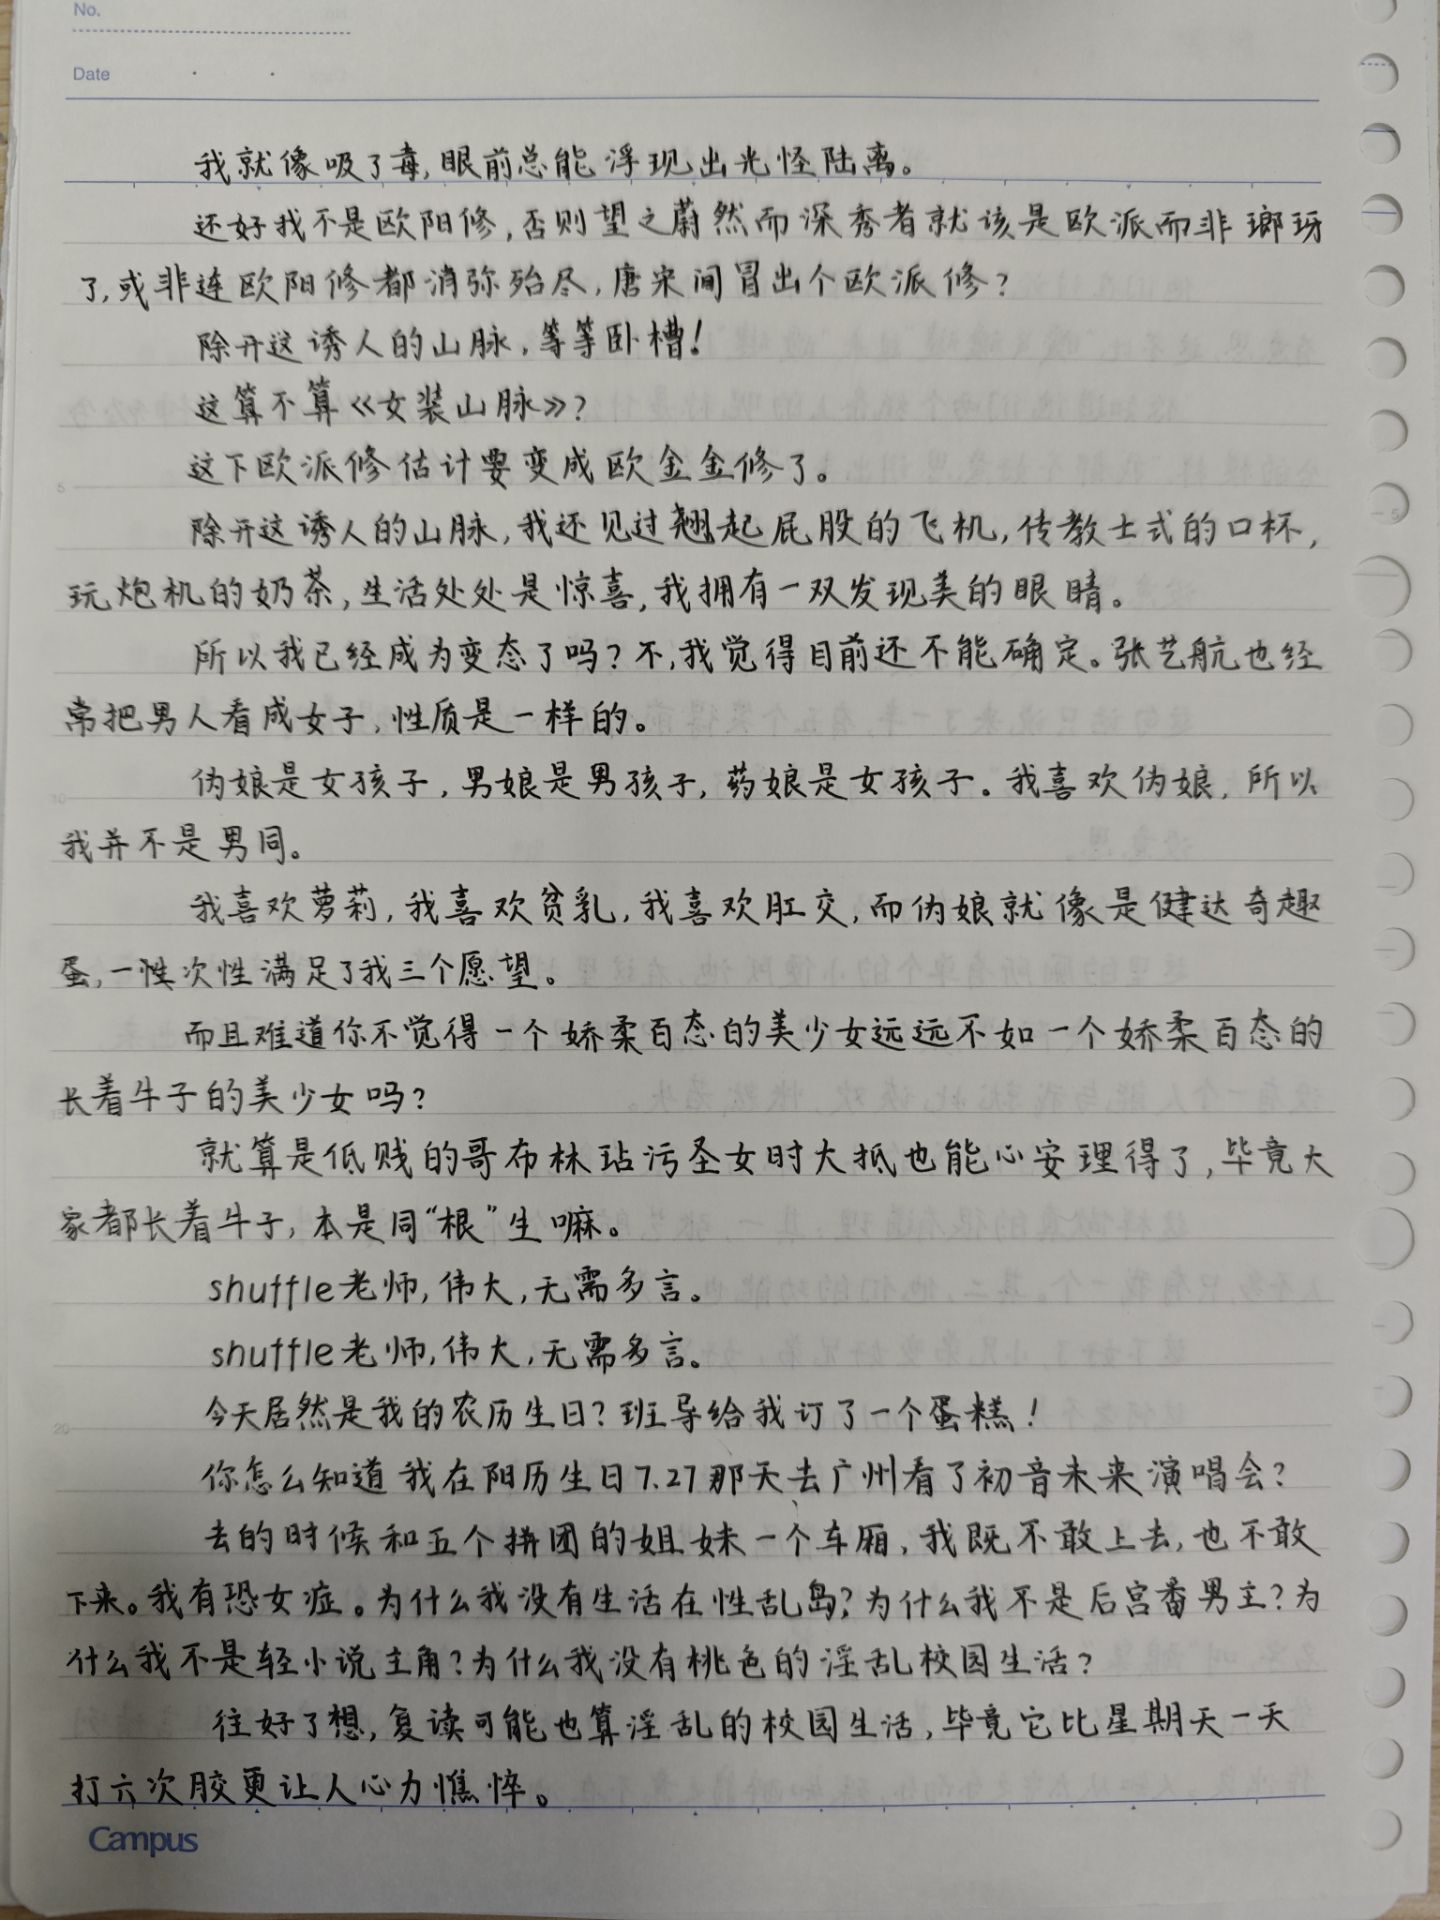 No.
Date
我就像吸了毒,眼前总能浮现出光怪陆离。
还好我不是欧阳修,否则望之蔚然而深秀者就该是欧派而非瑯玡
了,或非连欧阳修都消弥殆尽,唐宋间冒出个欧派修?
除开这诱人的山脉,等等卧槽!
这算不算《女装山脉》?
这下欧派修估计要变成欧金金修了。
除开这诱人的山脉,我还见过翘起屁股的飞机,传教士式的口杯,
玩炮机的奶茶,生活处处是惊喜,我拥有一双发现美的眼睛。
所以我已经成为变态了吗?不,我觉得目前还不能确定。张艺航也经
常把男人看成女子,性质是一样的。
伪娘是女孩子,男娘是男孩子,药娘是女孩子。我喜欢伪娘,所以
我并不是男同。
我喜欢萝莉,我喜欢贫乳,我喜欢肛交,而伪娘就像是健达奇趣
蛋,一性次性满足了我三个愿望。
而且难道你不觉得一个娇柔百态的美少女远远不如一个娇柔百态的
长着牛子的美少女吗?
就算是低贱的哥布林玷污圣女时大抵也能心安理得了,毕竟大
家都长着牛子,本是同“根”生嘛。
shuffle老师,伟大,无需多言。
shuffle老师,伟大,无需多言。
今天居然是我的农历生日?班导给我订了一个蛋糕!
你怎么知道我在阳历生日7.27那天去广州看了初音未来演唱会?
去的时候和五个拼团的姐妹一个车厢,我既不敢上去,也不敢
下来。我有恐女症。为什么我没有生活在性乱岛?为什么我不是后宫番男主?为
什么我不是轻小说主角?为什么我没有桃色的淫乱校园生活?
往好了想,复读可能也算淫乱的校园生活,毕竟它比星期天一天
打六次胶更让人心力憔悴。
Campus